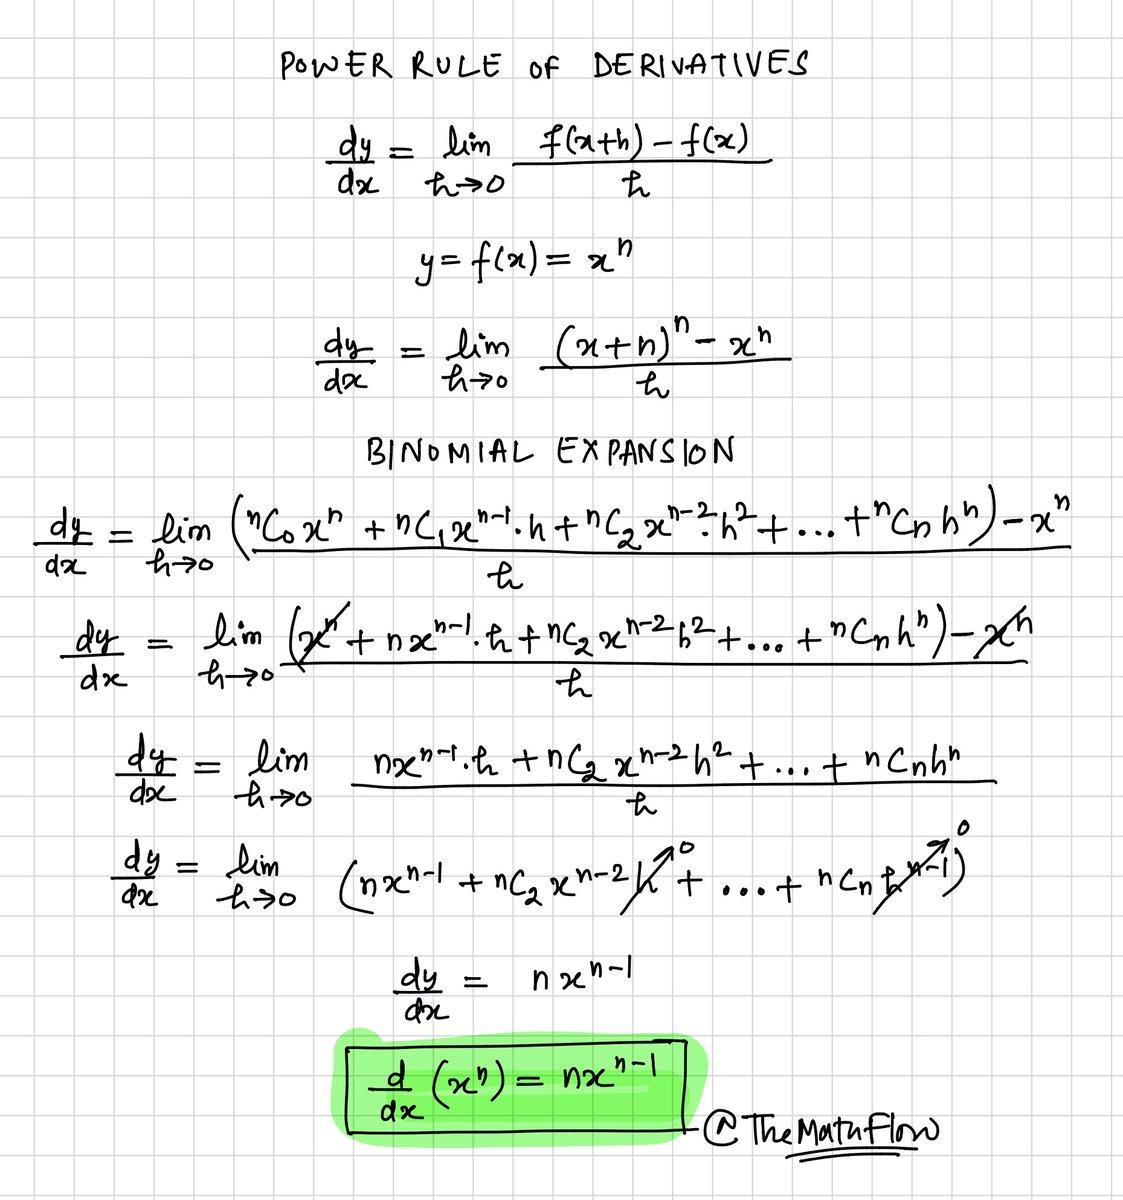 POWER RULE OF DERIVATIVES
dy/dx = lim h→0 f(x+h) − f(x) / h
y = f(x) = xⁿ
dy/dx = lim h→0 (x+h)ⁿ − xⁿ / h
BINOMIAL EXPANSION
dy/dx = lim h→0 (ⁿC₀xⁿ + ⁿC₁xⁿ⁻¹·h + ⁿC₂xⁿ⁻²·h² + ... + ⁿCₙhⁿ) − xⁿ / h
dy/dx = lim h→0 (xⁿ + nxⁿ⁻¹·h + ⁿC₂xⁿ⁻²h² + ... + ⁿCₙhⁿ) − xⁿ / h
dy/dx = lim h→0 nxⁿ⁻¹·h + ⁿC₂xⁿ⁻²h² + ... + ⁿCₙhⁿ / h
dy/dx = lim h→0 (nxⁿ⁻¹ + ⁿC₂xⁿ⁻²h→0 + ... + ⁿCₙhⁿ⁻¹→0)
dy/dx = nxⁿ⁻¹
d/dx (xⁿ) = nxⁿ⁻¹
@TheMathFlow